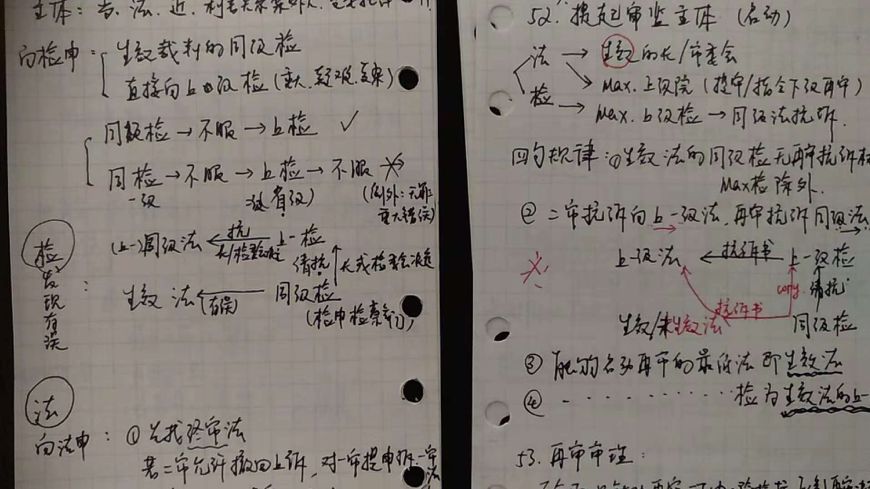 主体：当、法、近、利害关系案外人
向检申：生效裁判的同级检
直接向上一级检（重大、疑难、复杂）
同级检→不服→上检 ✓
同检→不服→上检→不服
一级
（例外：无罪
重大错误）
检发现有误：
（上一）同级法 ←抗 上一检
长/检委会决定
请抗 ↑长或检委会决定
生效法 ←（有误） 同级检
（检申检察部门）
法
向法申：①先找终审法
若二审允许撤回上诉，对一审提申诉一审法
52. 提起审监主体（启动）
法 → 生效的长/审委会
Max. 上级院（提审/指令下级再审）
检 → Max. 上级检→同级法抗诉.
四句规律：①生效法的同级检无再审抗诉权
Max检除外.
②二审抗诉向上一级法，再审抗诉同级法
上一级法 ←抗诉书 上一级检
抗诉书 copy 请抗
生效/未生效法 同级检
③能够启动再审的最低法即生效法
④ ········ 检为生效法的上一
53. 再审审理：